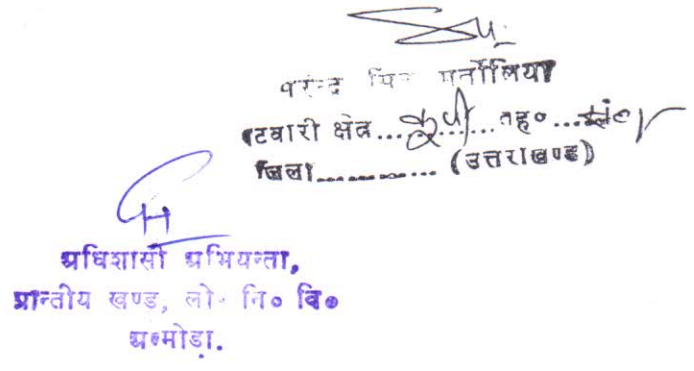 सिंह मर्तोलिया
पटवारी क्षेत्र.........तह०...
जिला............ (उत्तराखण्ड)
अधिशासी अभियन्ता,
प्रान्तीय खण्ड, लो० नि० वि०
अल्मोड़ा.